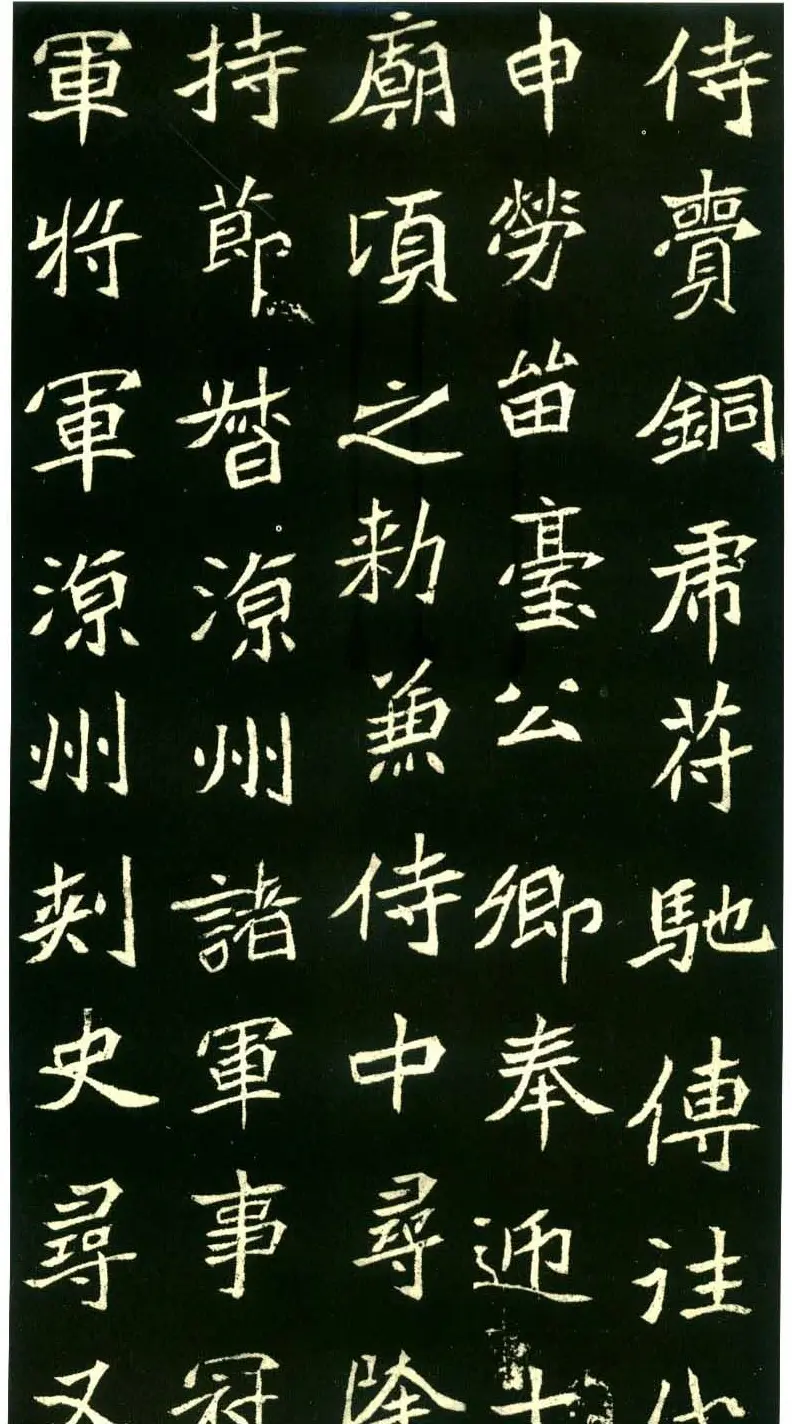 侍賷銅虎符馳傳往
申勞留臺公卿奉迎
廟頃之勑兼侍中尋除
持節督涼州諸軍事冠
軍將軍涼州刺史尋又